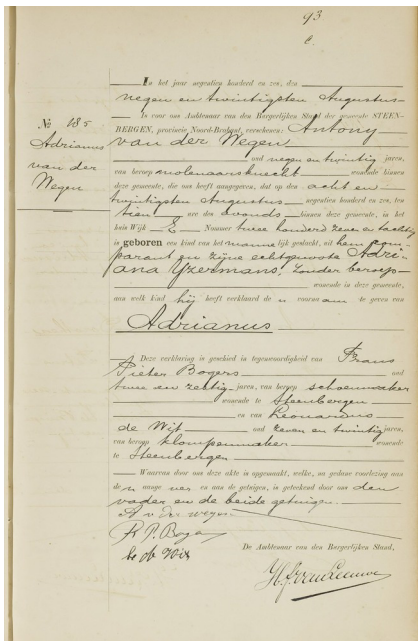 93
C.
In het jaar negentien honderd en zes, den
negen en twintigsten Augustus
is voor ons Ambtenaar van den Burgerlijken Stand der gemeente STEEN-
BERGEN, provincie Noord-Brabant, verschenen: Antony
van der Wegen
oud negen en twintig jaren,
van beroep molenaarsknecht wonende binnen
deze gemeente, die ons heeft aangegeven, dat op den acht en
twintigsten Augustus negentien honderd en zes, ten
tien ure des avonds binnen deze gemeente, in het
huis Wijk E Nommer twee honderd zeven en tachtig
is geboren een kind van het mannelijk geslacht, uit hem com-
parant en zijne echtgenoote Adri-
ana Yzermans, zonder beroep
wonende in deze gemeente,
aan welk kind hij heeft verklaard de n voornaam te geven van
Adrianus
Deze verklaring is geschied in tegenwoordigheid van Frans
Pieter Bogers oud
twee en zestig jaren, van beroep schoenmaker
wonende te Steenbergen
en van Leonardus
de Wit oud zeven en twintig jaren,
van beroep klompenmaker wonende
te Steenbergen
Waarvan door ons deze akte is opgemaakt, welke, na gedane voorlezing aan
de n aangever en aan de getuigen, is geteekend door ons den
vader en de beide getuigen.
A v der wegen
De Ambtenaar van den Burgerlijken Stand,
No 185
Adrianus
van der
Wegen